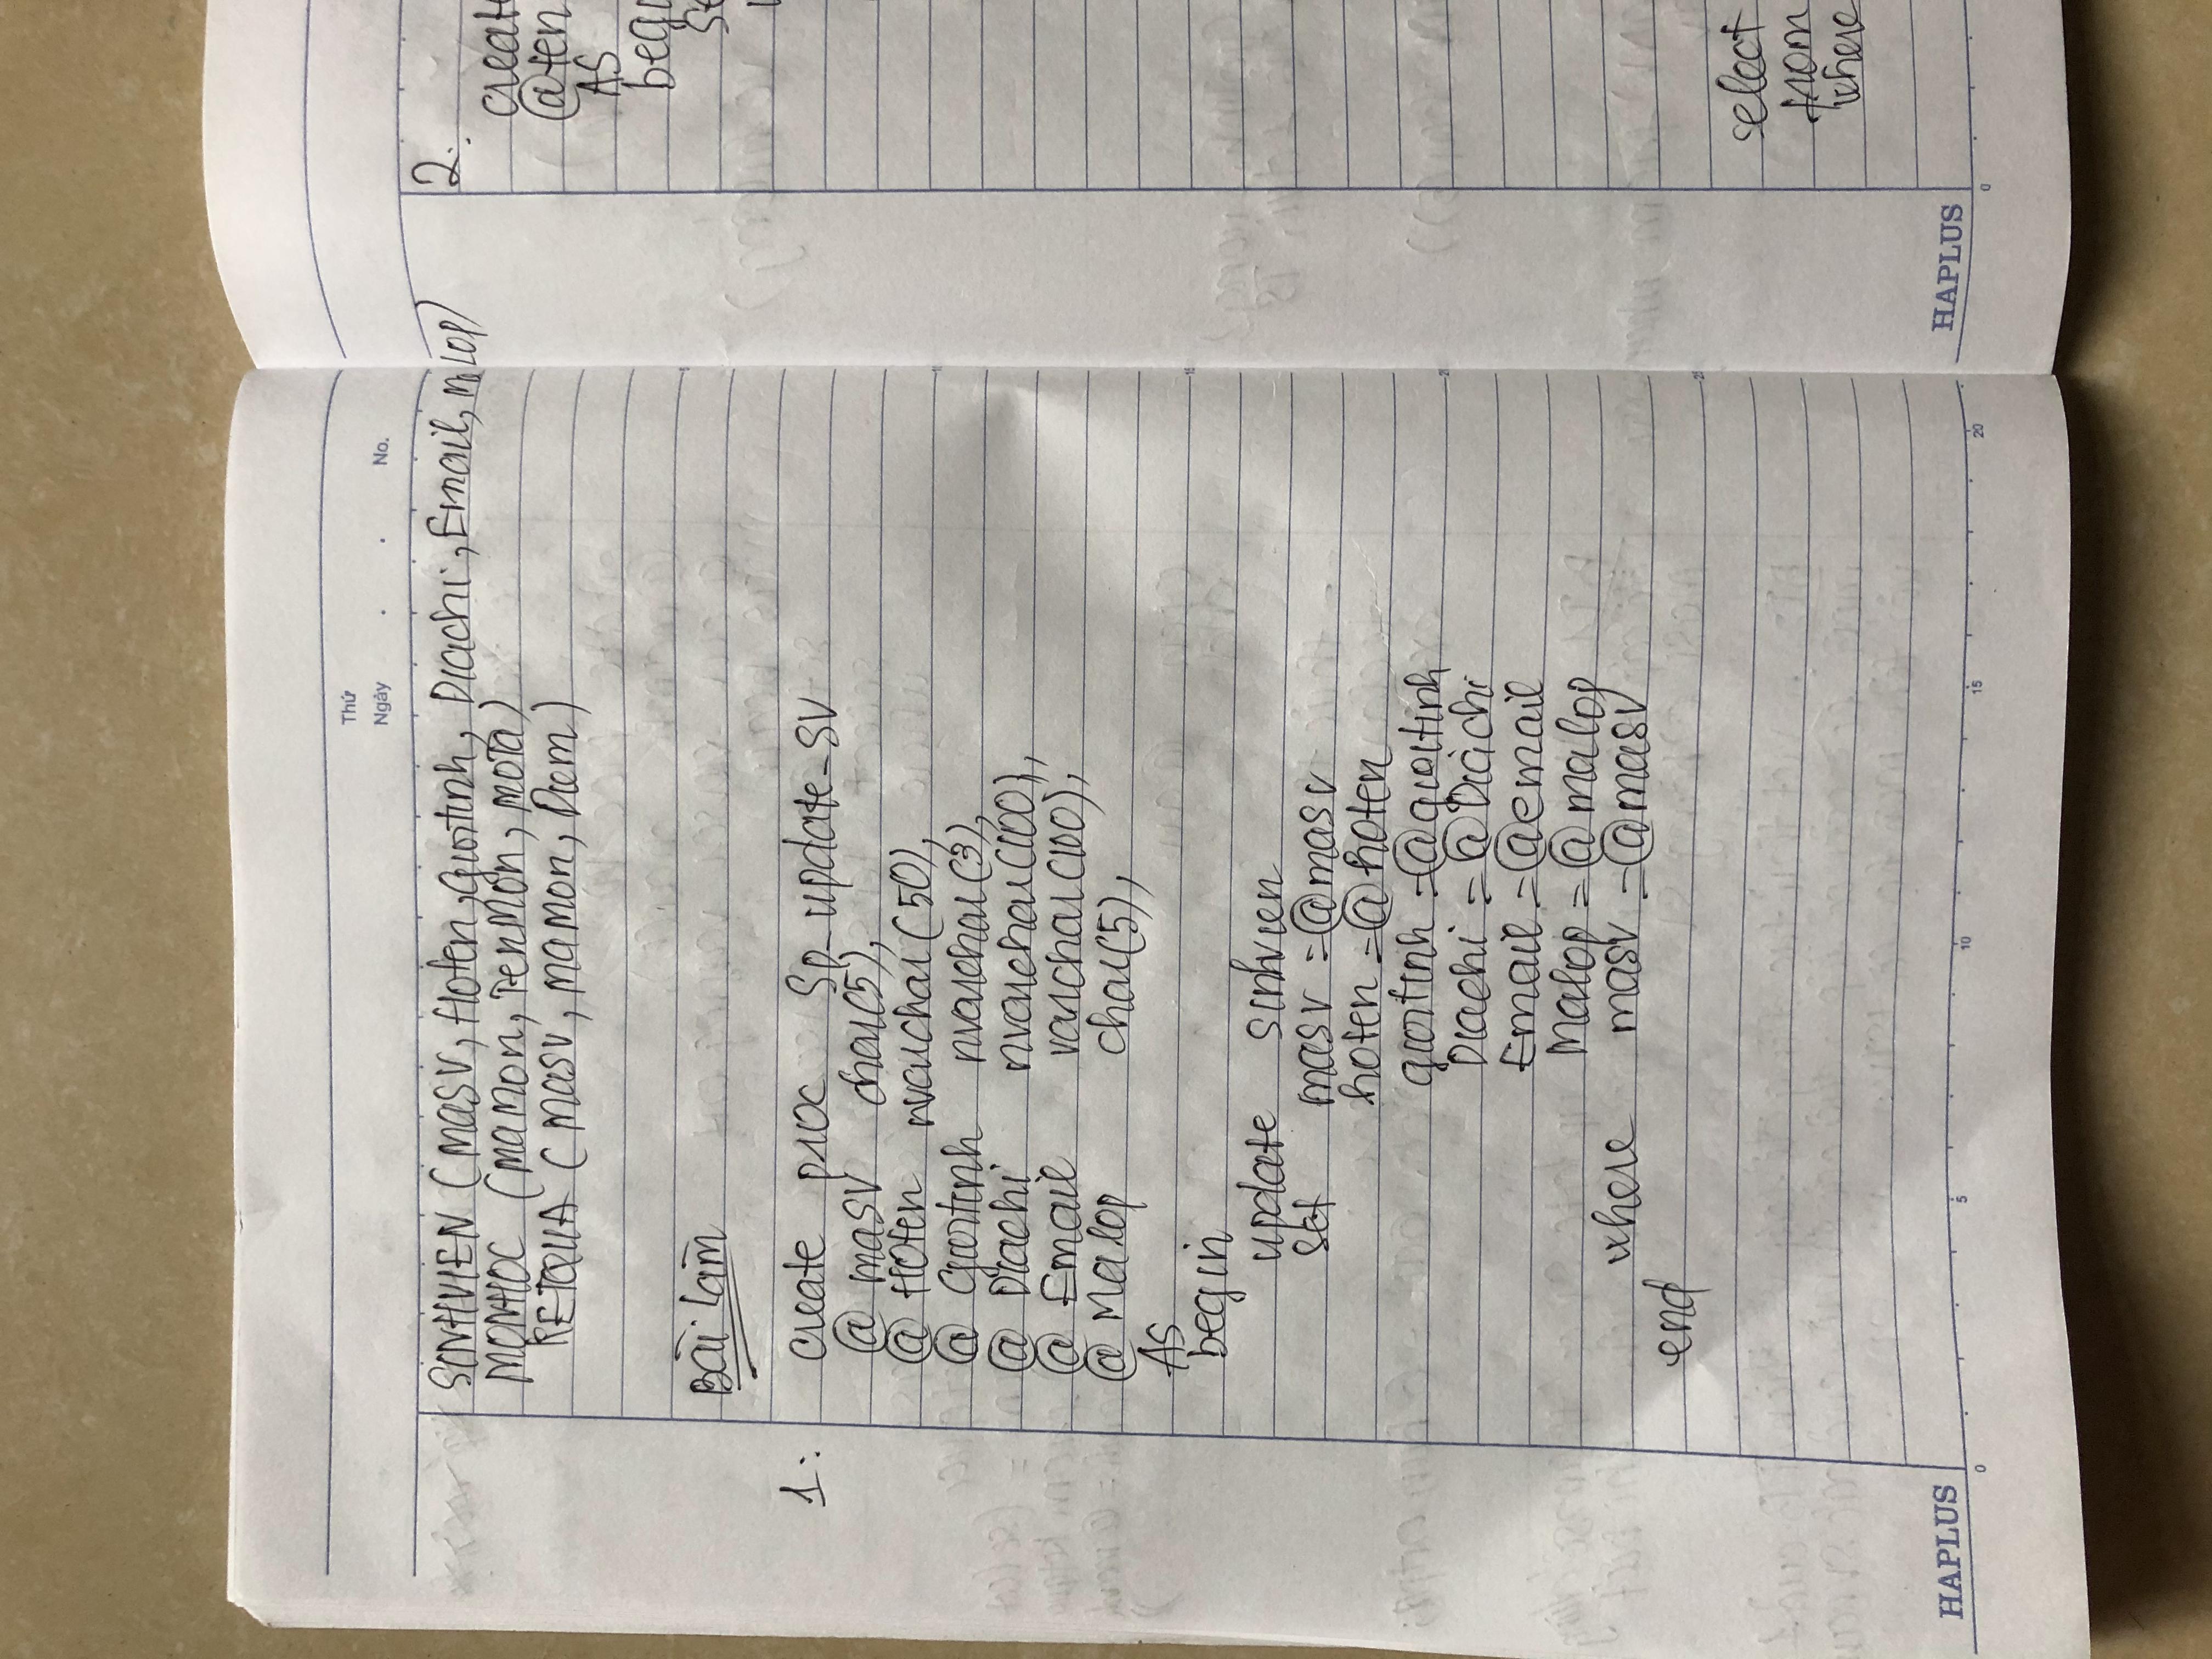 Thứ
Ngày . . No.
SINHVIEN (MASV, Hoten, Gioitinh, Diachi, Email, malop)
MONHOC (MaMon, TenMon, Mota)
KETQUA (Masv, mamon, Diem)
Bài làm
1:
create proc Sp_update_SV
@ maSV char(5),
@ Hoten nvarchar(50),
@ Gioitinh nvarchar(3),
@ Diachi nvarchar(100),
@ Email varchar(100),
@ Malop char(5),
AS
begin
update sinhvien
set masv = @masv
hoten = @hoten
gioitinh = @gioitinh
Diachi = @Diachi
Email = @email
Malop = @malop
where masv = @masv
end
HAPLUS
0 5 10 15 20
2.
create
@ten
AS
begi
se
select
from
where
HAPLUS
0